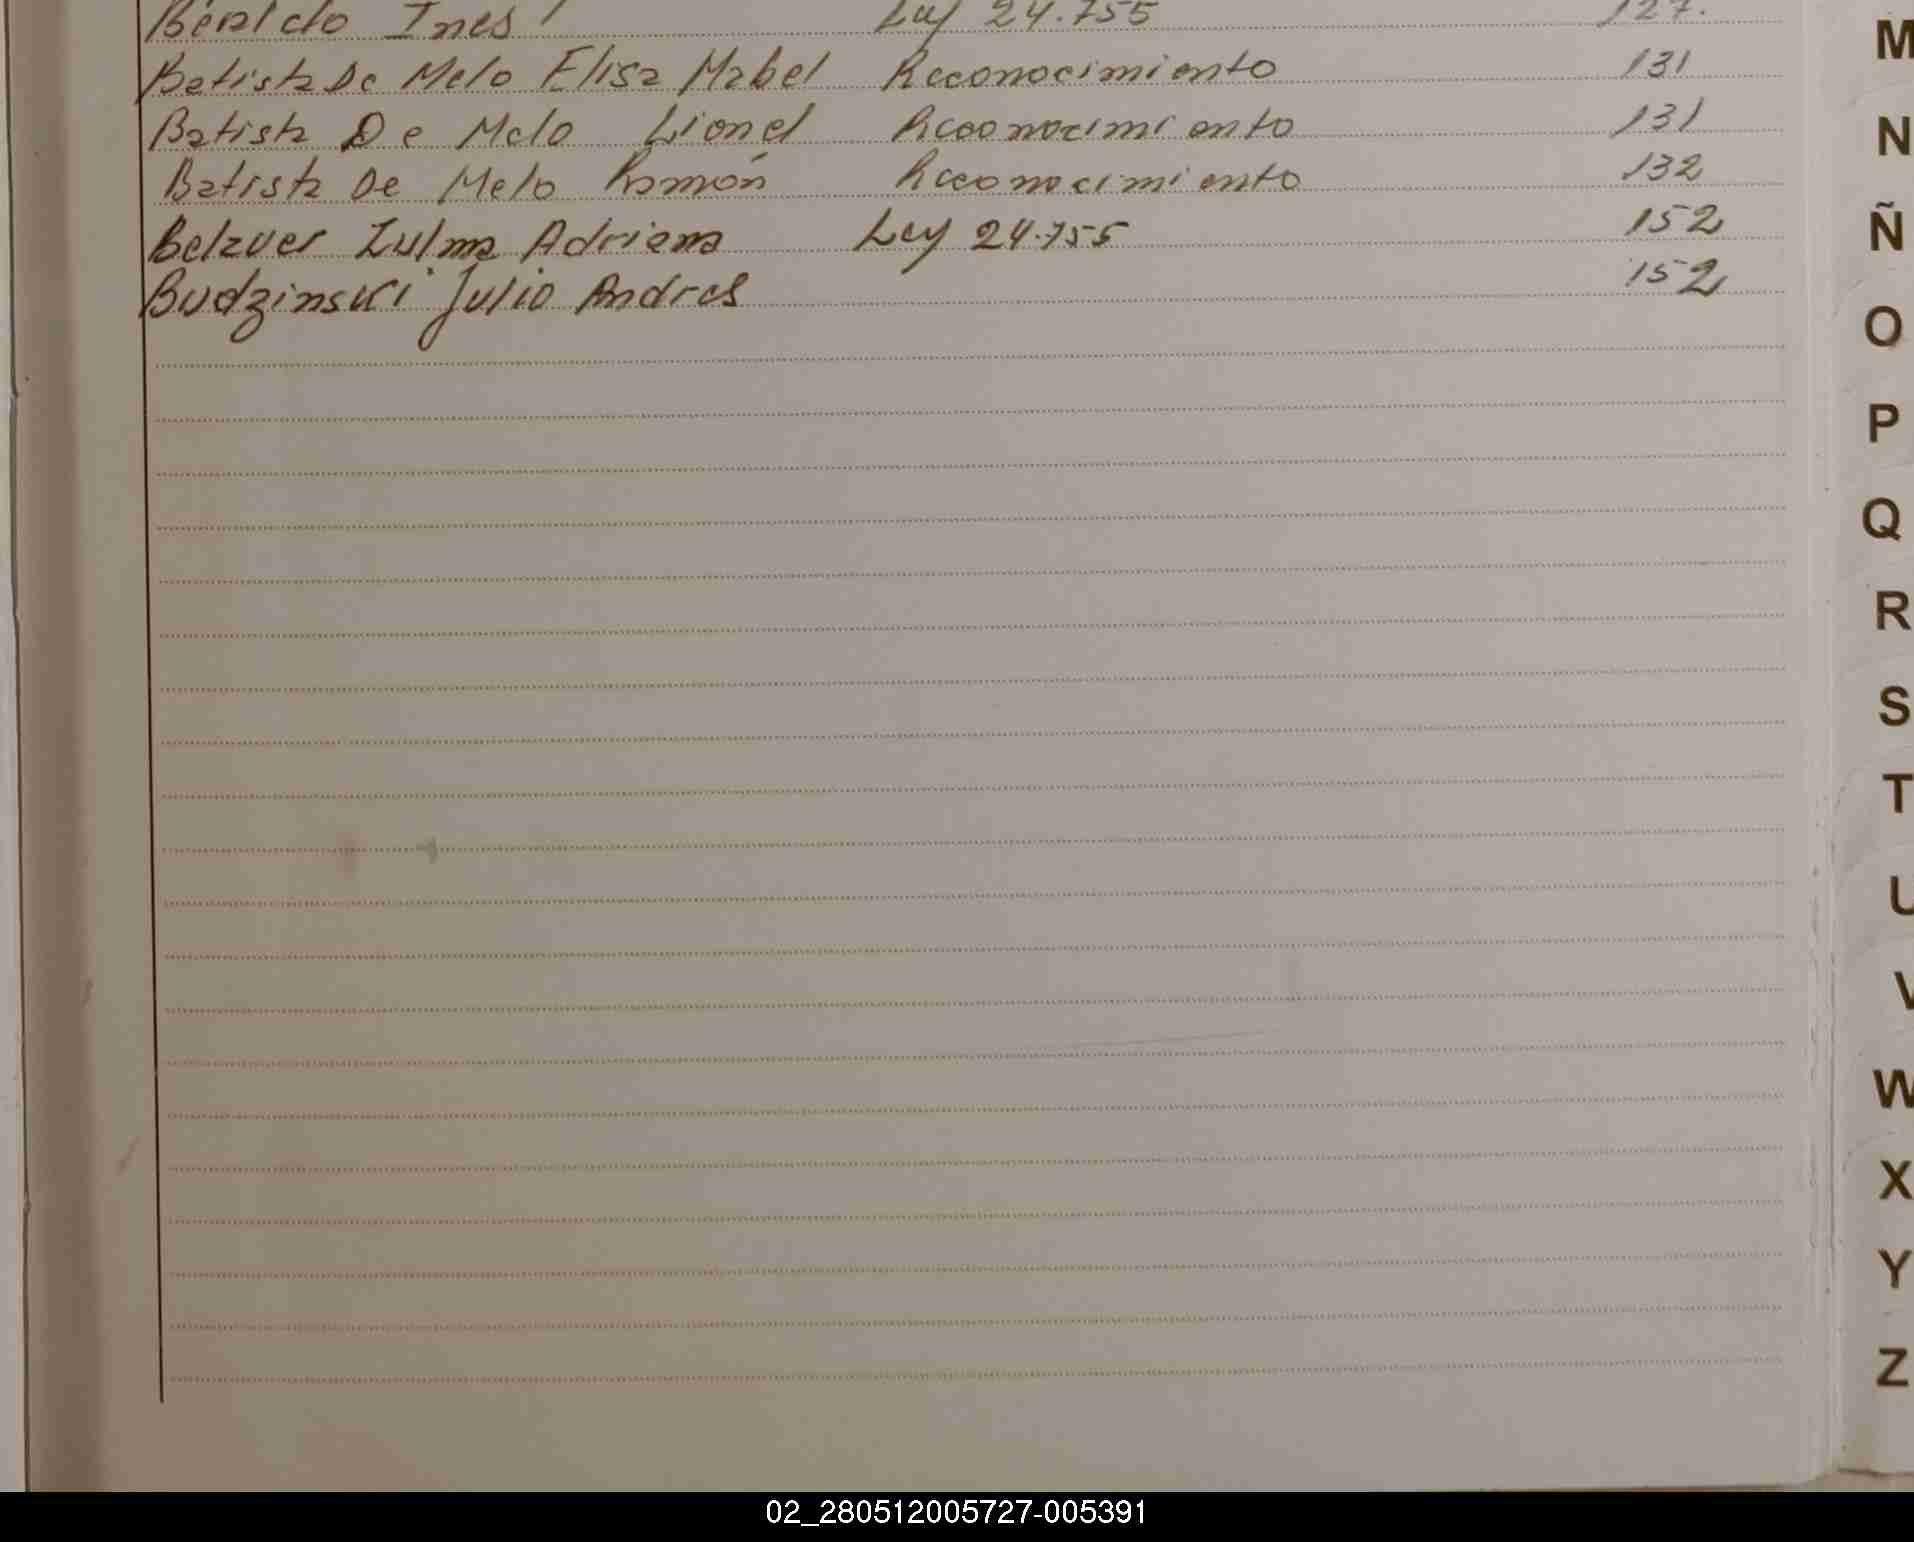 Beraldo Ines Ley 24.755 127.
Batista De Melo Elisa Mabel Reconocimiento 131
Batista De Melo Lionel Reconocimiento 131
Batista De Melo Ramón Reconocimiento 132
Belauer Zulma Adriana Ley 24.755 152
Budzinski Julio Andres 152
M
N
Ñ
O
P
Q
R
S
T
U
V
W
X
Y
Z
02_280512005727-005391